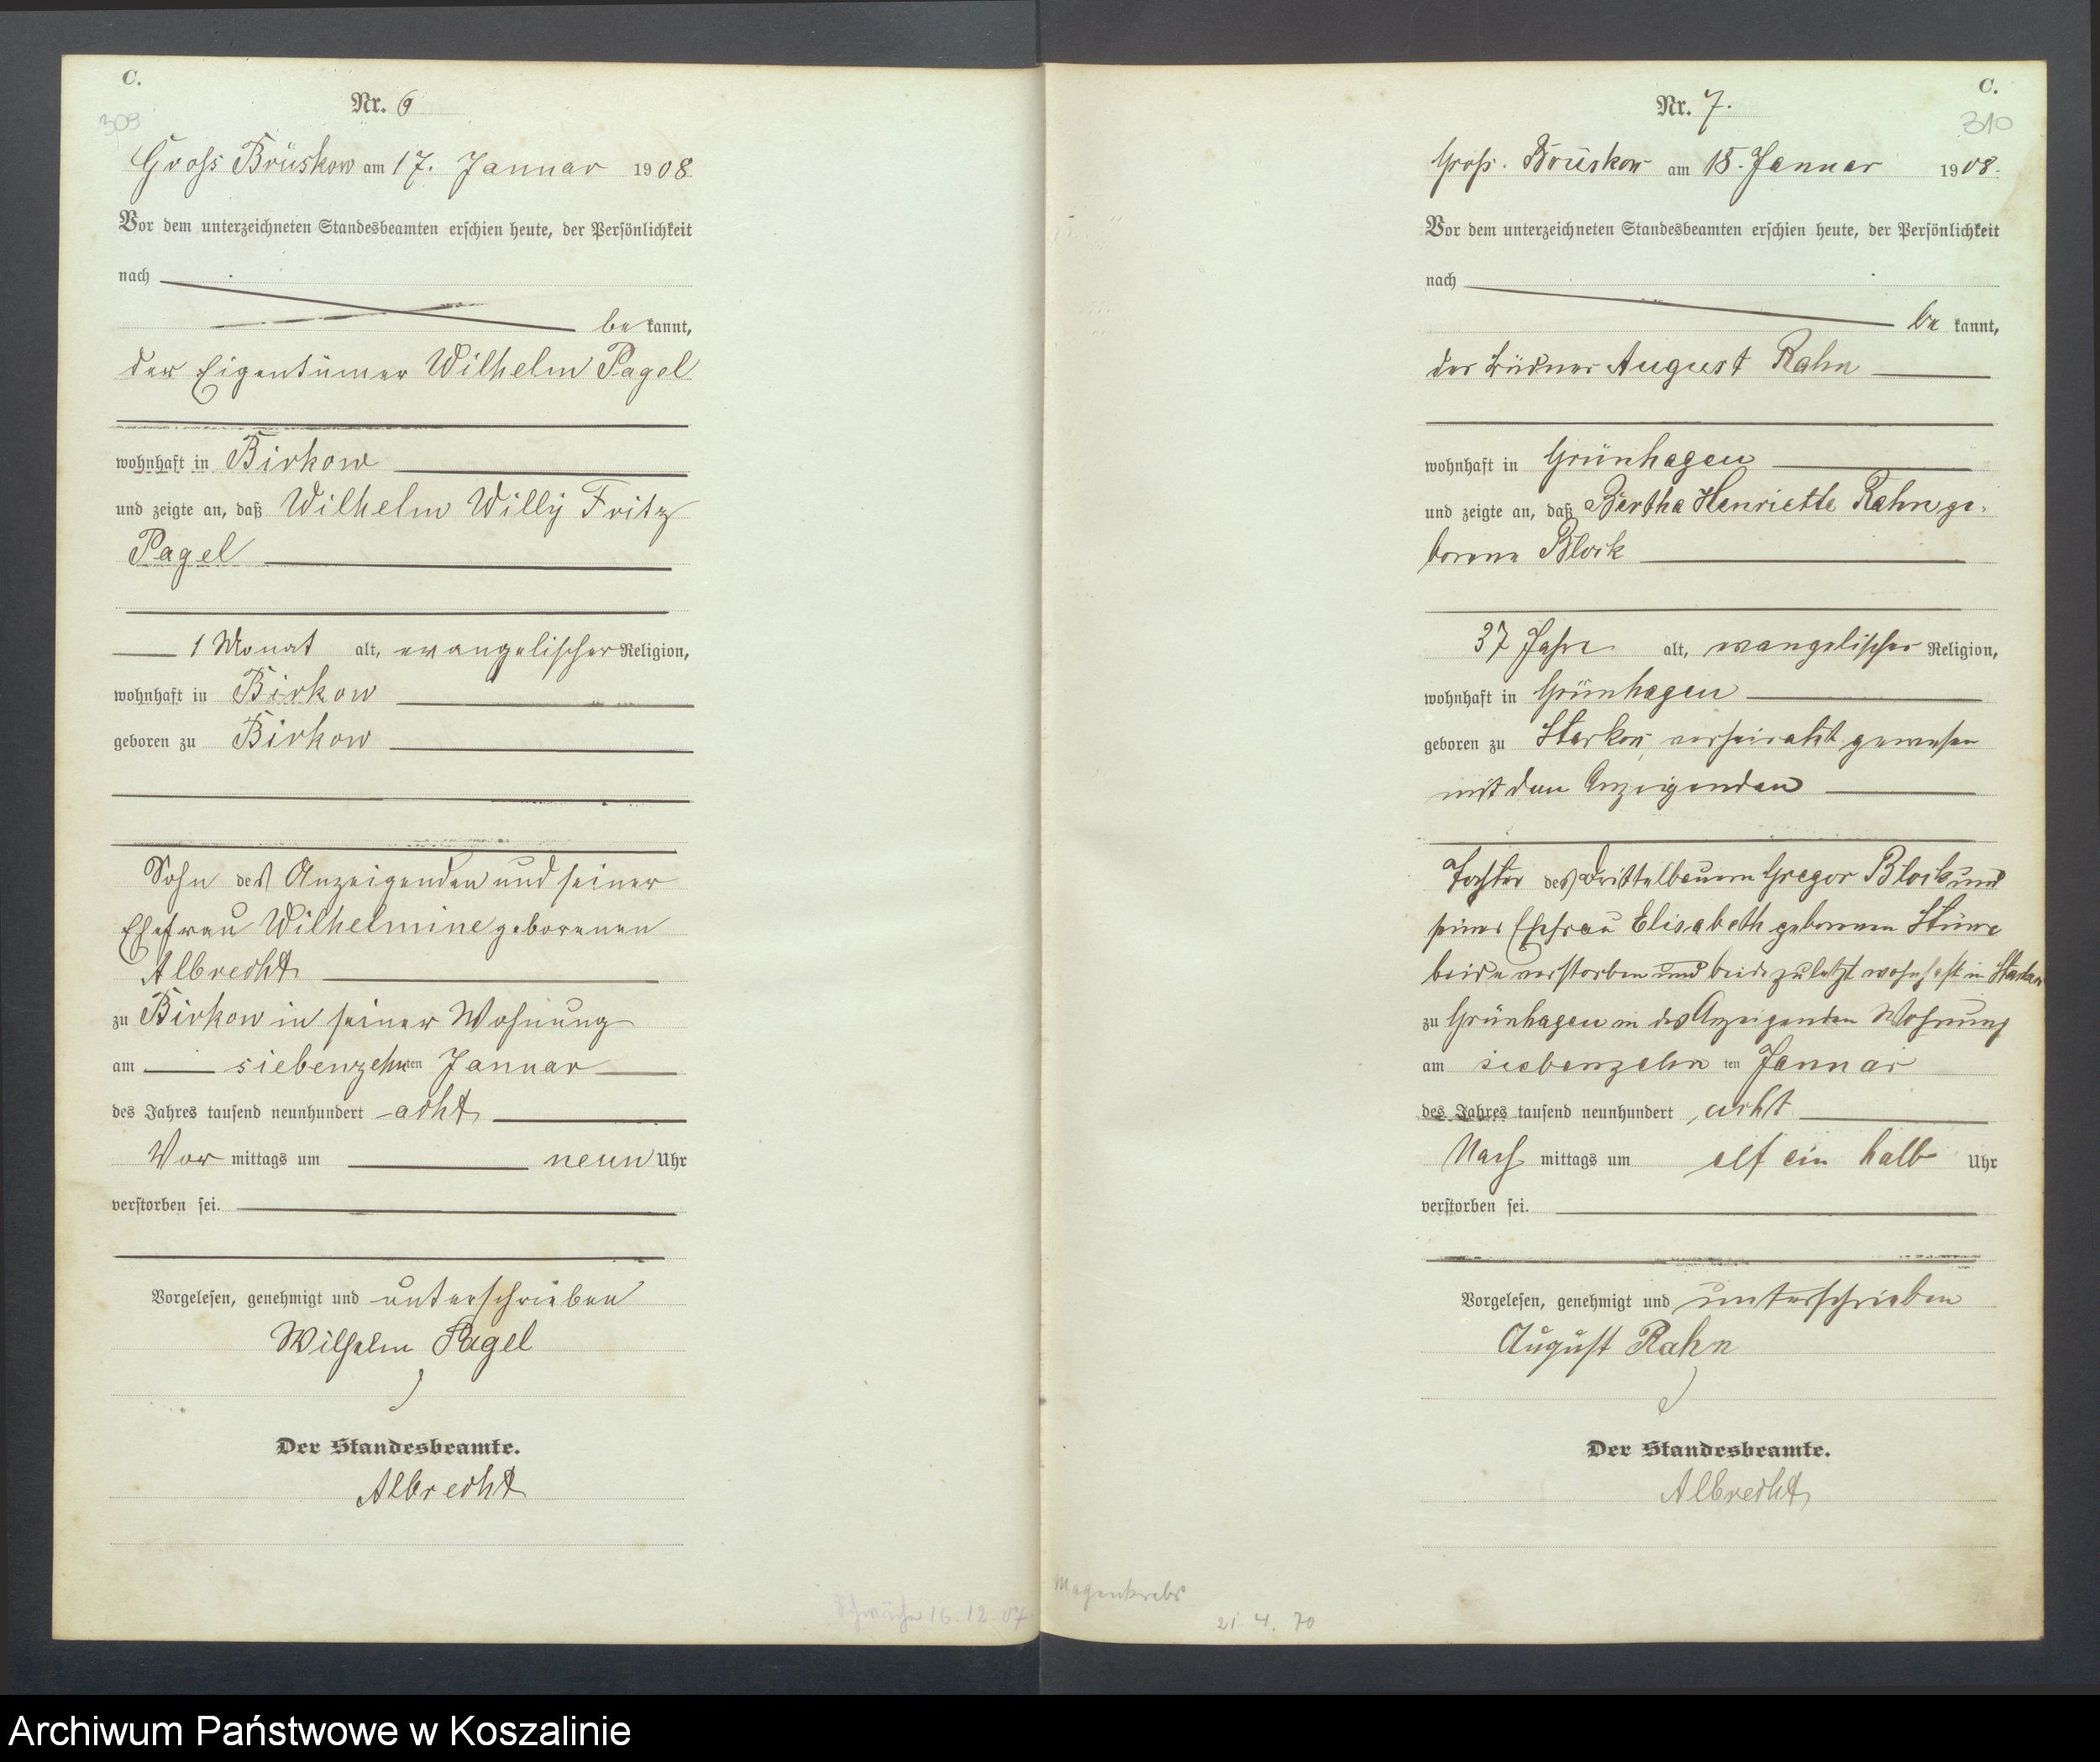 C.
309
Nr. 6
Gross Brüskow am 17. Januar 1908
Vor dem unterzeichneten Standesbeamten erschien heute, der Persönlichkeit
nach
bekannt,
der Eigentümer Wilhelm Pagel
wohnhaft in Birkow
und zeigte an, daß Wilhelm Willy Fritz
Pagel
1 Monat alt, evangelischer Religion,
wohnhaft in Birkow
geboren zu Birkow
Sohn des Anzeigenden und seiner
Ehefrau Wilhelmine geborenen
Albrecht
zu Birkow in seiner Wohnung
am siebenzehnten Januar
des Jahres tausend neunhundert acht
Vor mittags um neun Uhr
verstorben sei.
Vorgelesen, genehmigt und unterschrieben
Wilhelm Pagel
Der Standesbeamte.
Albrecht
Schwäche 16.12.07
C.
310
Nr. 7.
Groß. Brüskow am 18. Januar 1908.
Vor dem unterzeichneten Standesbeamten erschien heute, der Persönlichkeit
nach
be kannt,
der Büdner August Rahn
wohnhaft in Grünhagen
und zeigte an, daß Bertha Henriette Rahn ge-
borene Block
37 Jahre alt, evangelischer Religion,
wohnhaft in Grünhagen
geboren zu Starkow, verheiratet gewesen
mit dem Anzeigenden
Tochter des Drittelbauern Gregor Block und
seiner Ehefrau Elisabeth geborenen Stüwe
beide verstorben und beide zuletzt wohnhaft in Starkow
zu Grünhagen in des Anzeigenden Wohnung
am siebenzehn ten Januar
des Jahres tausend neunhundert acht
Nach mittags um elf ein halb Uhr
verstorben sei.
Vorgelesen, genehmigt und unterschrieben
August Rahn
Der Standesbeamte.
Albrecht
Magenkrebs
21. 4. 70
Archiwum Państwowe w Koszalinie